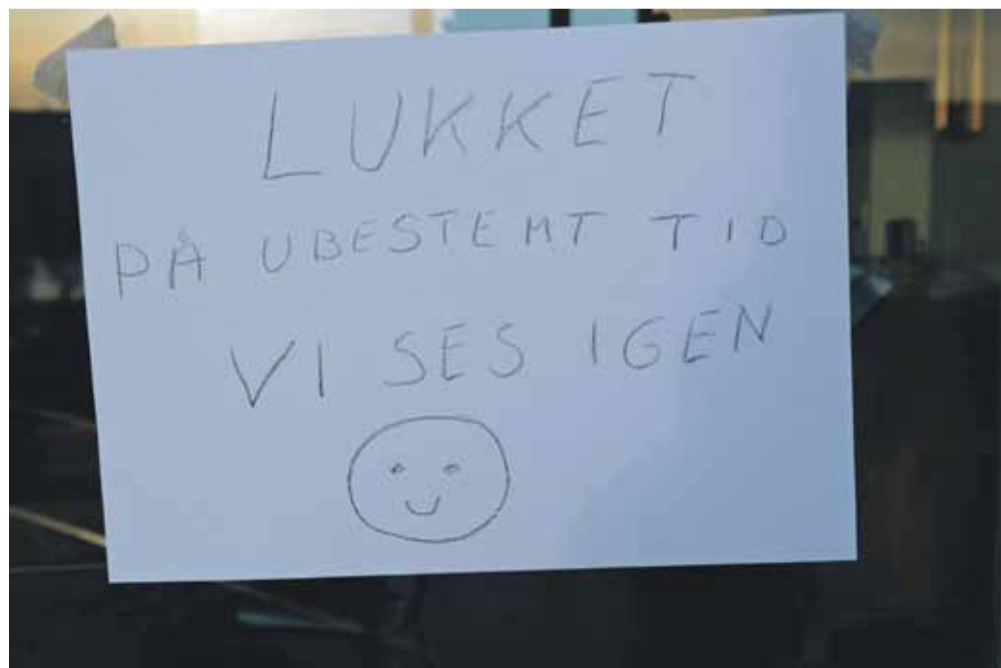 LUKKET
PÅ UBESTEMT TID
VI SES IGEN